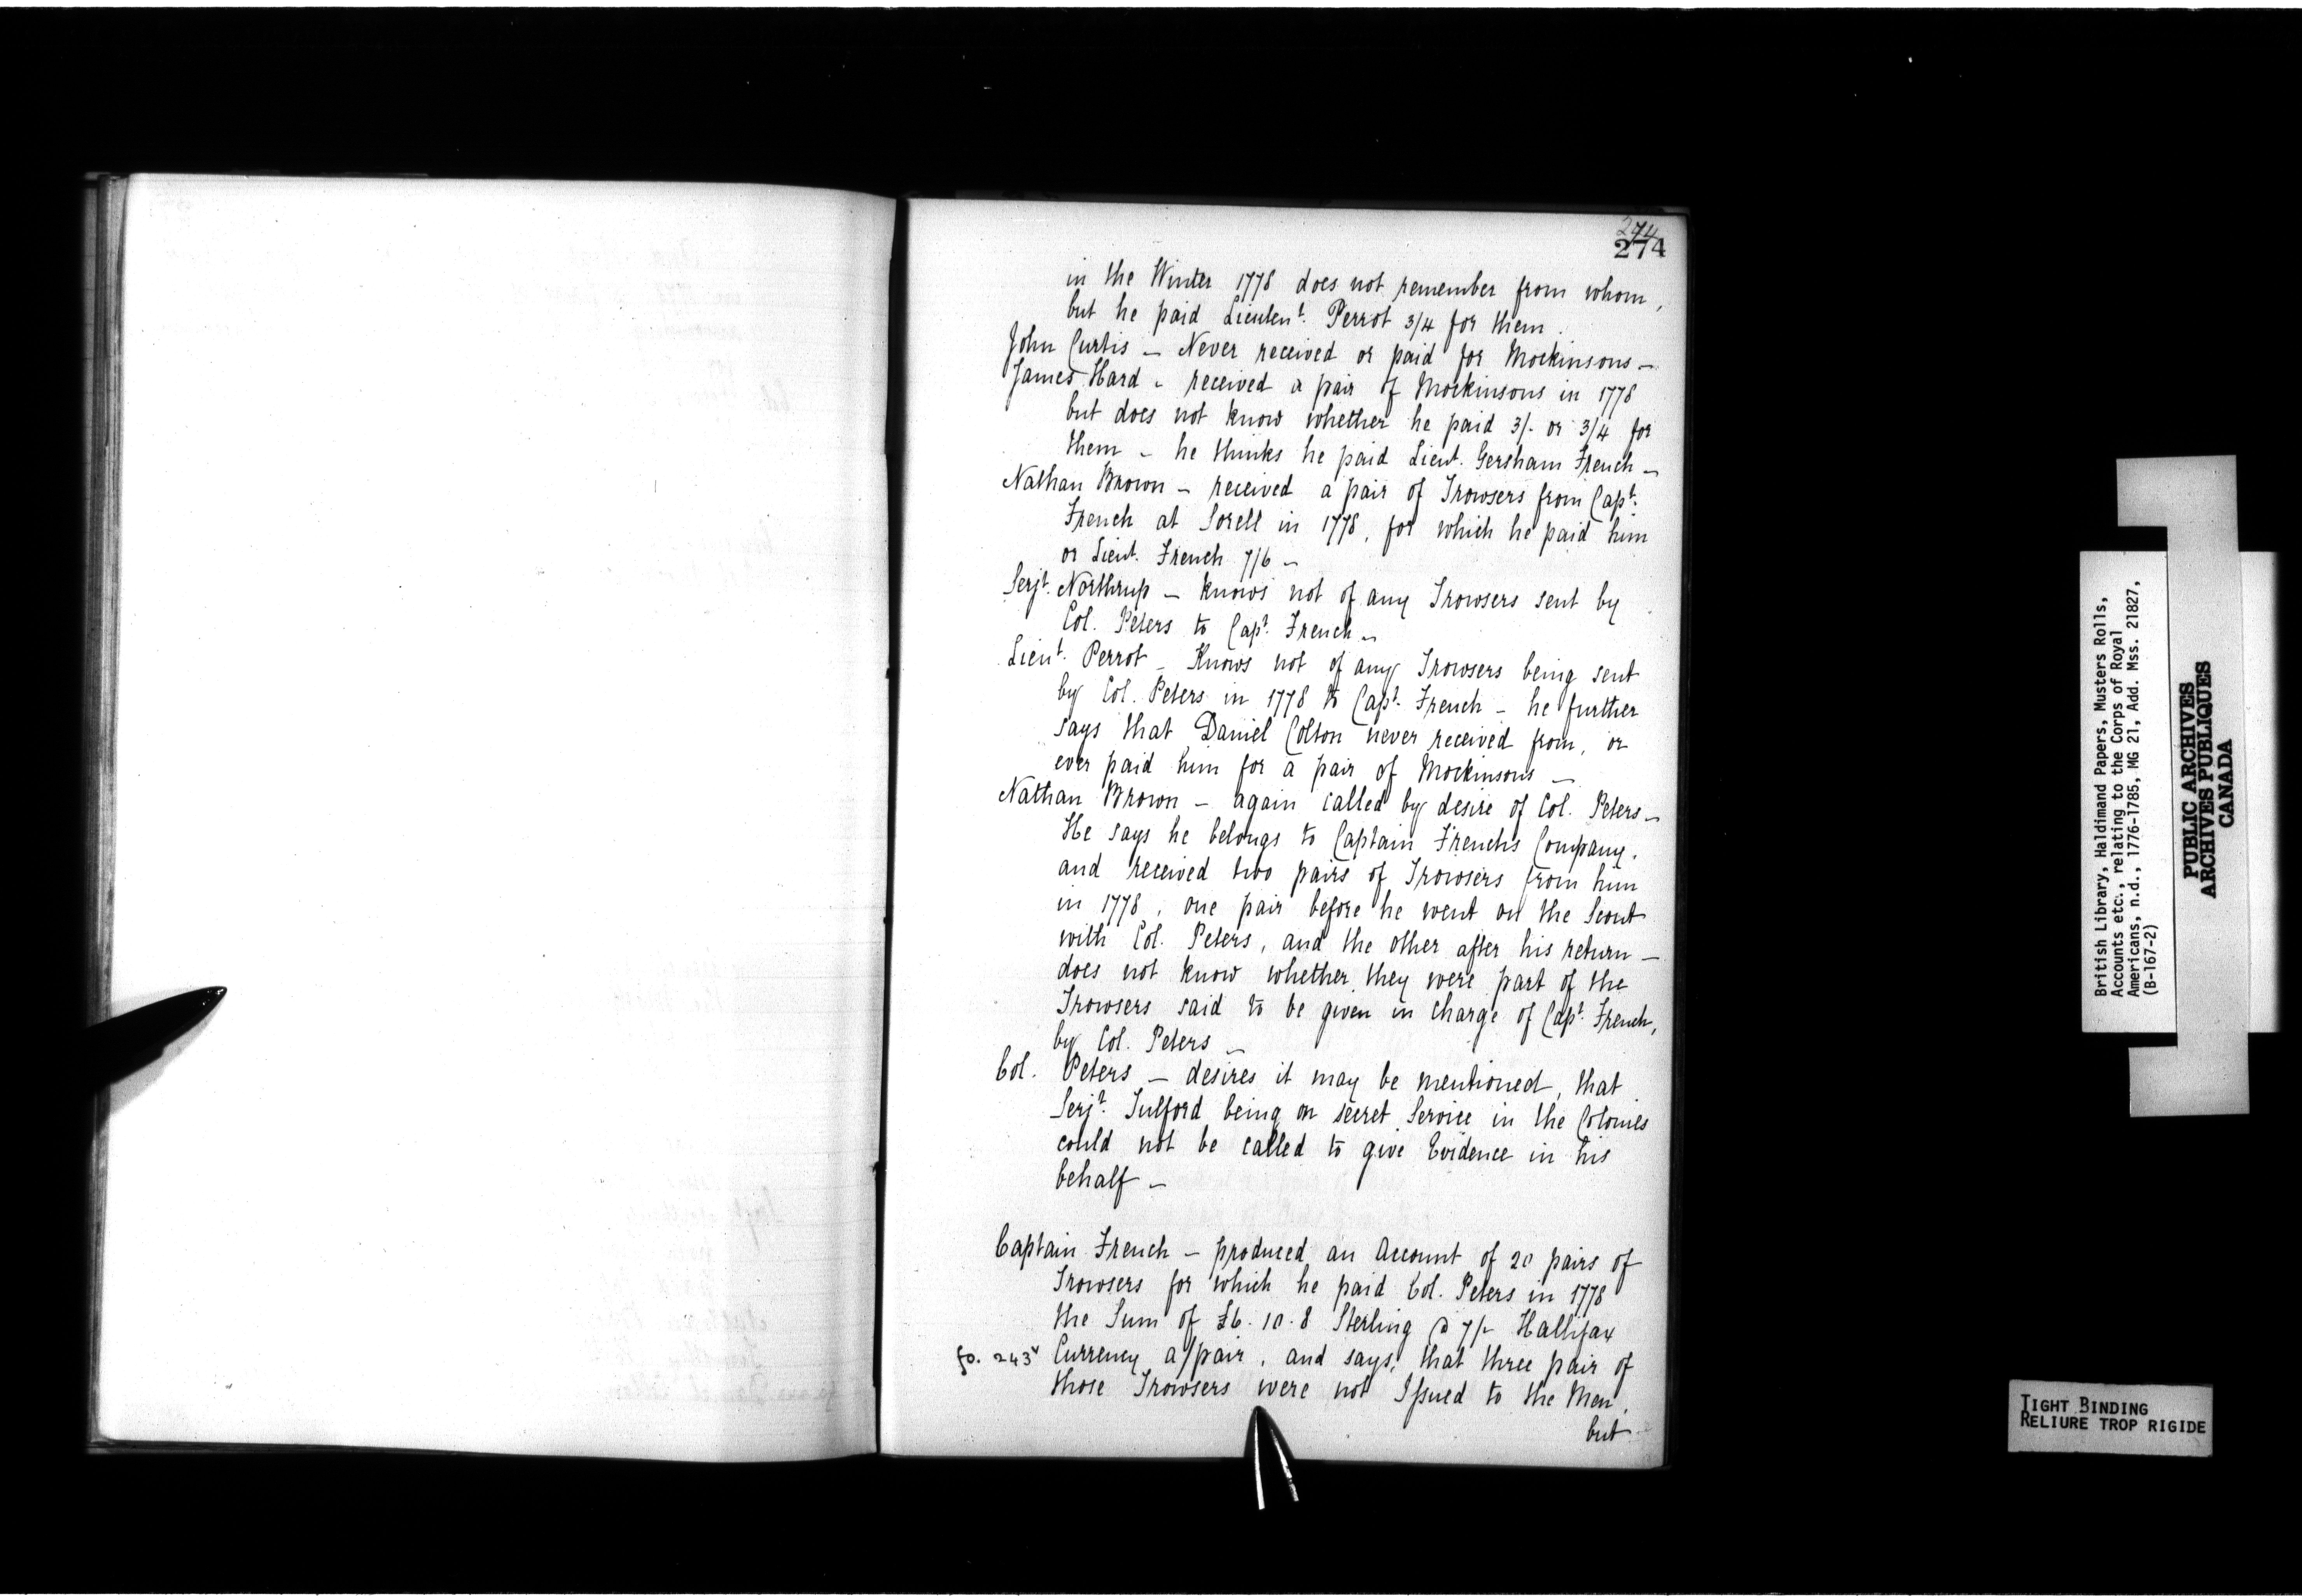 274
274
in the Winter 1778 does not remember from whom,
but he paid Lieutent. Perrot 3/4 for them.
John Curtis - Never received or paid for Mockinsons -
James Hard - received a pair of Mockinsons in 1778
but does not know whether he paid 3/- or 3/4 for
them - he thinks he paid Lieut. Gersham French -
Nathan Brown - received a pair of Trowsers from Capt.
French at Sorell in 1778, for which he paid him
or Lieut. French 7/6 -
Serjt. Northrup - knows not of any Trowsers sent by
Col. Peters to Capt. French -
Lieut. Perrot - Knows not of any Trowsers being sent
by Col. Peters in 1778 to Capt. French - he further
says that Daniel Colton never received from, or
ever paid him for a pair of Mockinsons -
Nathan Brown - again called by desire of Col. Peters -
He says he belongs to Captain Frenchs Company,
and received two pairs of Trowsers from him
in 1778, one pair before he went on the Scout
with Col. Peters, and the other after his return -
does not know whether they were part of the
Trowsers said to be given in charge of Capt. French,
by Col. Peters -
Col. Peters - desires it may be mentioned, that
Serjt. Tulford being on secret Service in the Colonies
could not be called to give Evidence in his
behalf -
Captain French - produced an Account of 20 pairs of
Trowsers for which he paid Col. Peters in 1778
the Sum of £6.10.8 Sterling @ 7/- Hallifax
fo. 243v Currency a/pair, and says, that three pair of
those Trowsers were not Issued to the Men,
but
British Library, Haldimand Papers, Musters Rolls,
Accounts etc., relating to the Corps of Royal
Americans, n.d., 1776-1785, MG 21, Add. Mss. 21827,
(B-167-2)
PUBLIC ARCHIVES
ARCHIVES PUBLIQUES
CANADA
TIGHT BINDING
RELIURE TROP RIGIDE